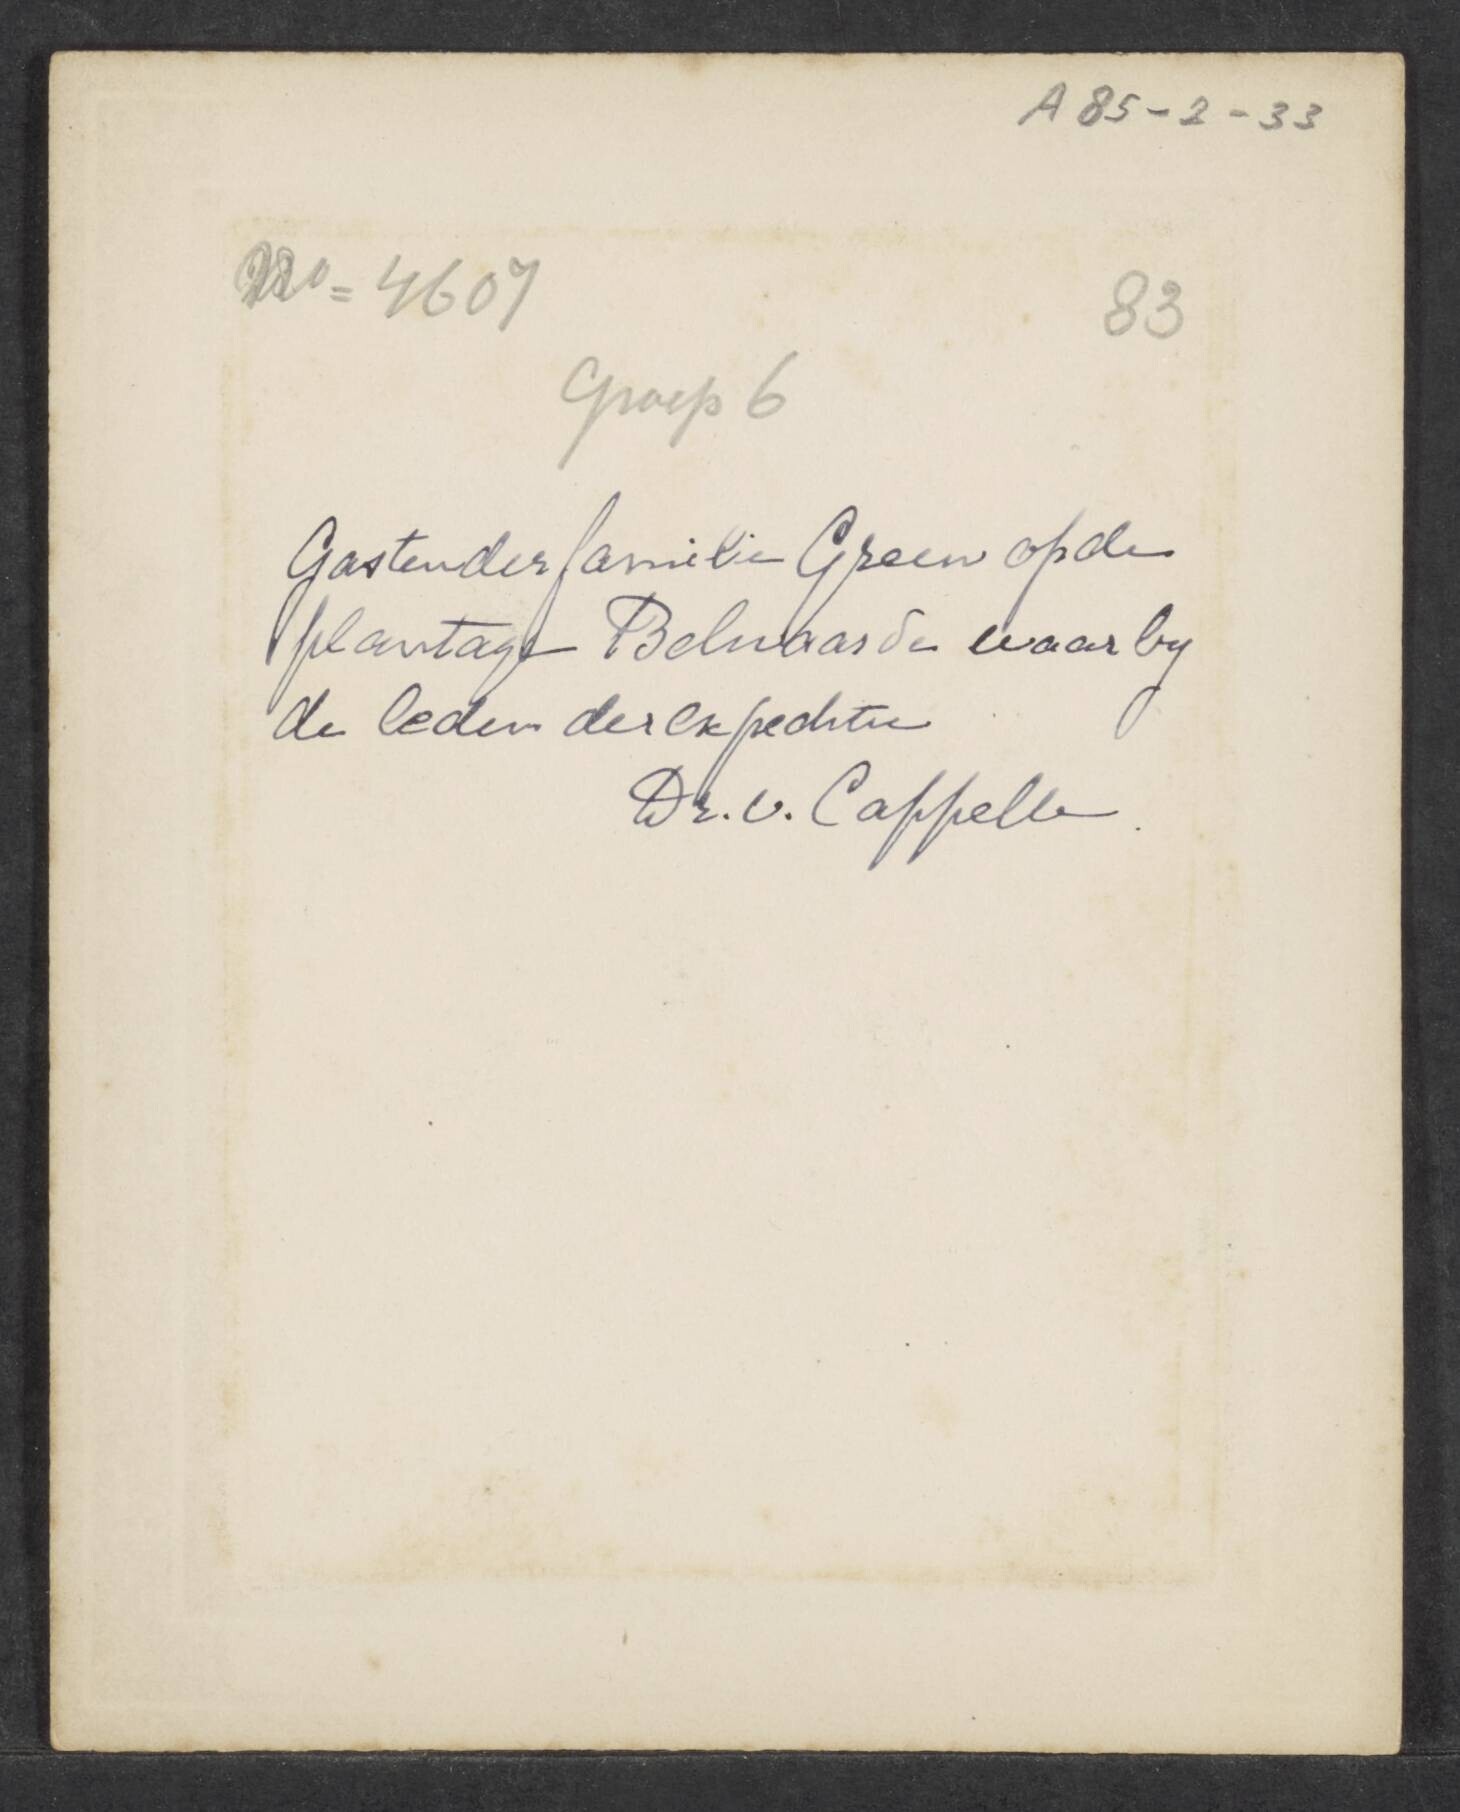 A 85-2-33
No= 4607
83
Groep 6
Gasten der familie Green op de
plantage Belwaarde waarby
de leden der expeditie
Dr. v. Cappelle